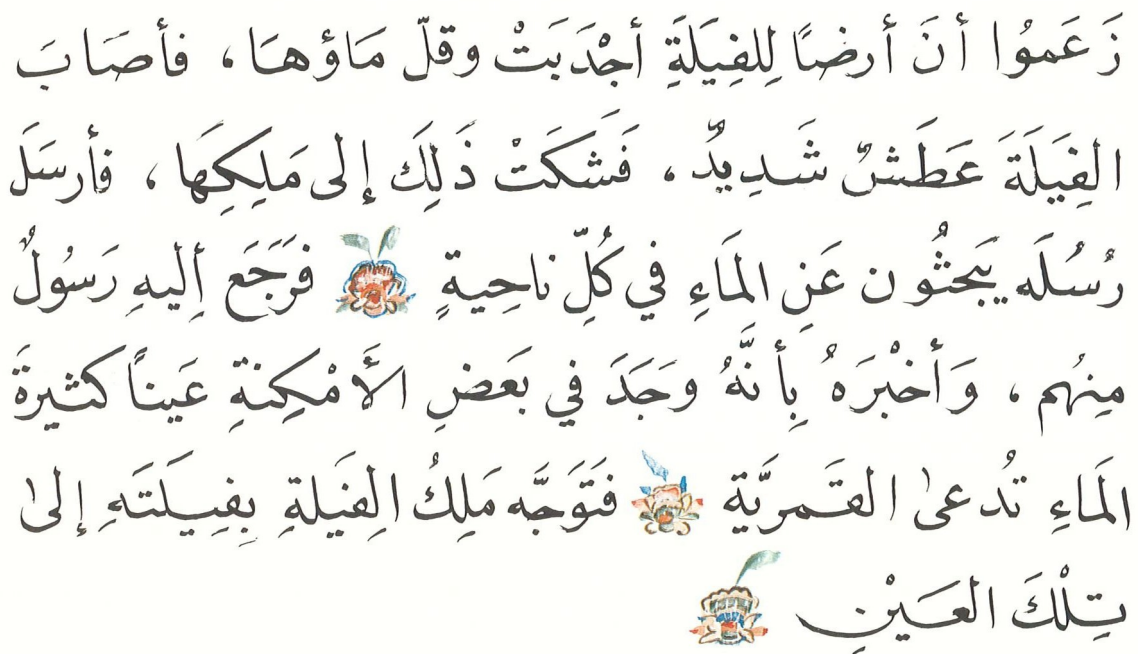 زَعَموُا أنَ أرضًا لِلفِيَلَةِ أجْدَبَتْ وقلّ مَاؤهَا، فأصَابَ
الفِيَلَةَ عَطَشٌ شَدِيدٌ، فَشَكَتْ ذَلِكَ إلى مَلِكِهَا، فأرسَلَ
رُسُلَه يَبحثُون عَنِ المَاءِ في كُلِّ ناحِيةٍ فرَجَع إليهِ رَسُولٌ
مِنهُم، وَأخْبَرَهُ بِأنَّهُ وجَدَ في بَعَضِ الأَمْكِنةِ عَيناً كثيرةَ
المَاءِ تُدعىٰ القَمريَّةِ فتَوَجَّه مَلِكُ الفِيَلةِ بِفِيلَتَهِ إلىٰ
تِلْكَ العَيْنِ